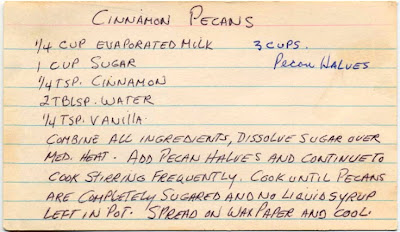 CINNAMON PECANS
1/4 CUP EVAPORATED MILK 3 CUPS.
1 CUP SUGAR Pecan HALVES
1/4 TSP. CINNAMON
2 TBLSP. WATER
1/4 TSP. VANILLA.
COMBINE ALL INGREDIENTS, DISSOLVE SUGAR OVER
MED. HEAT. ADD PECAN HALVES AND CONTINUE TO
COOK STIRRING FREQUENTLY. COOK UNTIL PECANS
ARE COMPLETELY SUGARED AND NO LIQUID SYRUP
LEFT IN POT. SPREAD ON WAX PAPER AND COOL.